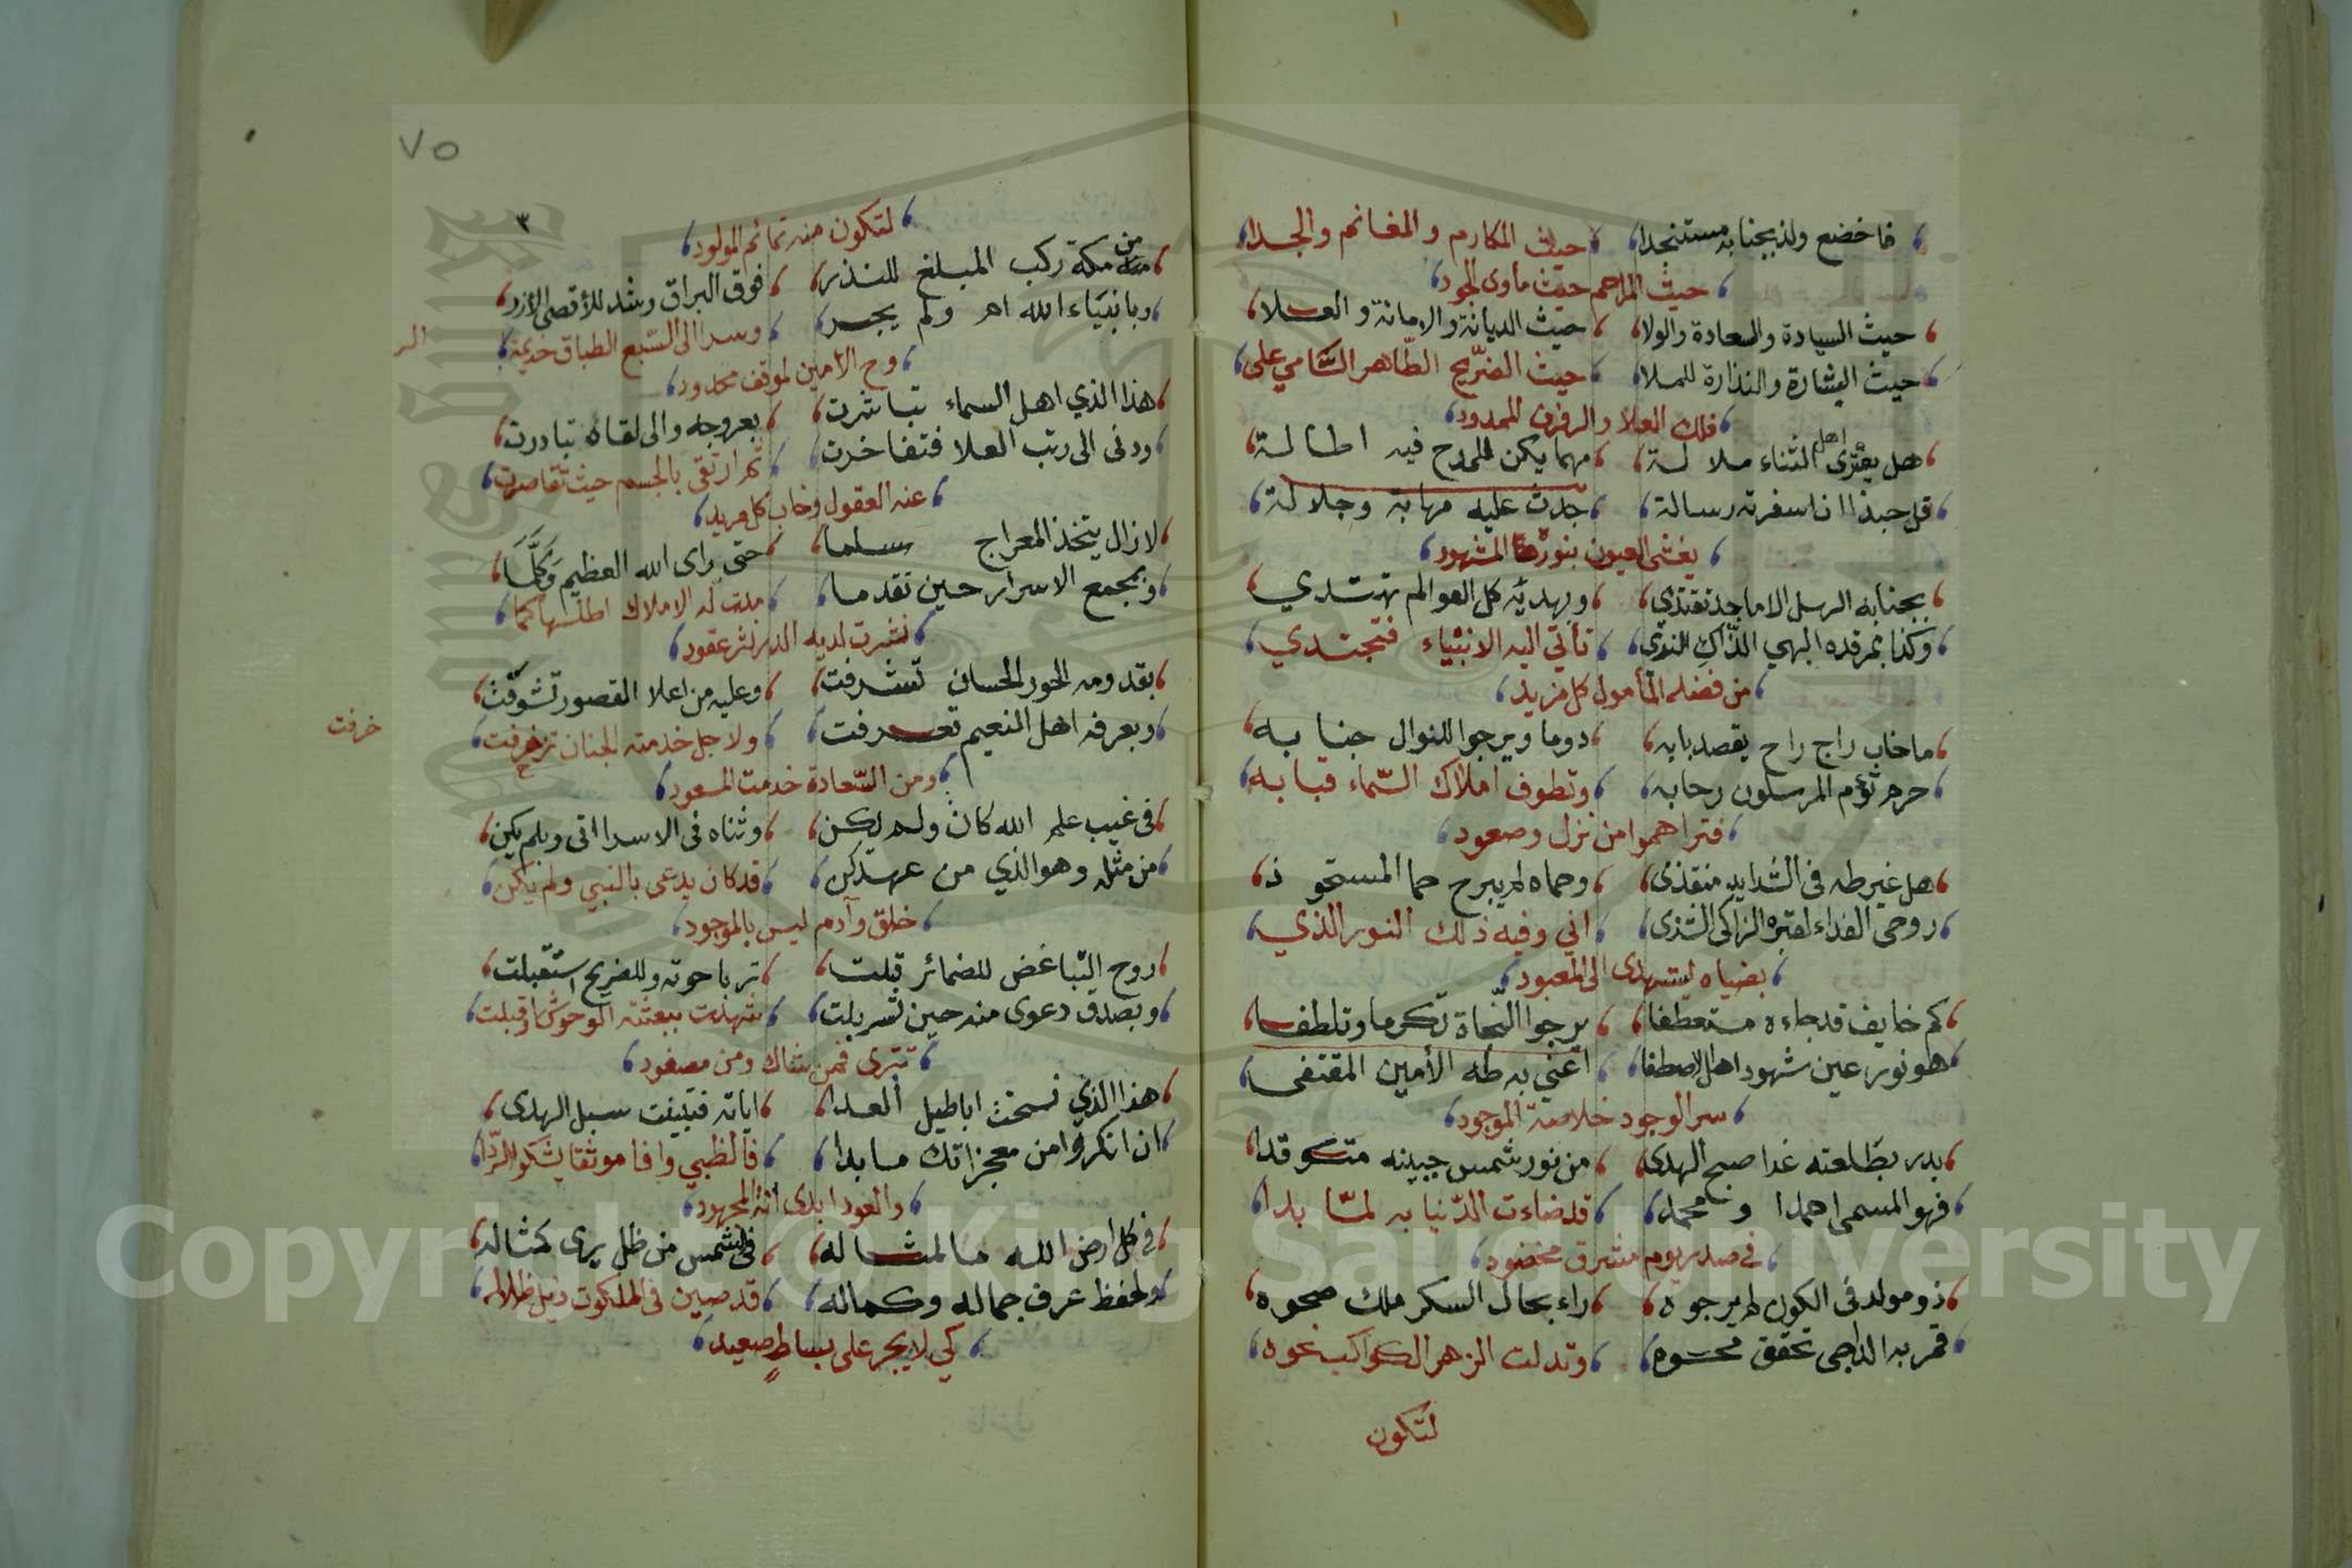 فاخضع ولذ بجنابه مستنجدا حيث المكارم والمغانم والجدا
حيث المراحم حيث ماوى الجود
حيث السيادة والسعادة والولا حيث الديانة والامانة والعلا
حيث البشارة والنذارة للملا حيث الضريح الطاهر السامي على
فلك العلا والرفرف الممدود
هل يعترى اهل الثناء ملالة مهما يكن للمدح فيه اطالة
قل حبذا ان اسفرته رسالة جدت عليه مهابة وجلالة
يغشى العيون بنورها المشهود
بجنابه الرسل الاماجد تقتدي وبهديه كل العوالم تهتدي
وكذا بمرقده البهي الذاك الندى تأتي اليه الانبياء فتجتدي
من فضله المأمول كل مزيد
ما خاب راج راح يقصد بابه دوما ويرجوا للنوال جنابه
حرم تؤم المرسلون رحابه وتطوف املاك السماء قبابه
فتراهموا من نزل وصعود
هل غير طه فى الشدايد منقذى وحماه لم يبرح حما المستحوذ
روحى الفداء لقبره الزاكى الشذى انى وفيه ذلك النور الذي
بضياه يستهدى الى المعبود
كم خايف قد جاءه مستعطفا يرجوا النجاة تكرما وتلطفا
هو نور عين شهود اهل الاصطفا اعني به طه الأمين المقتفى
سر الوجود خلاصة الموجود
بدر بطلعته غدا صبح الهدى من نور شمس جبينه متوقدا
فهو المسمى احمدا ومحمد قد ضاءت الدنيا به لما بدا
في صدر يوم مشرق مخضود
ذو مولد فى الكون لم يرجوه راء بحال السكر ملك صحوه
قمر به الداجى تحقق محوه وتدلت الزهر الكواكب نحوه
لتكون
٧٥
٣
لتكون منه تمائم المولود
من مكة ركب المبلغ للنذر فوق البراق وشد للأقصى الأزر
وبانبياء الله ام ولم يجر وسرا الى السبع الطباق خديمة
الر
وح الأمين لموقف محدود
هذا الذي اهل السماء تباشرت بعروجه والى لقاه تبادرت
ودنى الى رتب العلا فتفاخرت ثم ارتقى بالجسم حيث تقاصرت
عنه العقول وخاب كل مريد
لازال يتخذ المعراج سلما حتى راى الله العظيم وكلما
وبمجمع الاسرار حين تقدما مدت له الاملاك اطلسها كما
نثرت لديه الدر نثر عقود
بقدومه الحور الحسان تشرفت وعليه من اعلا القصور تشوقت
وبعرفه اهل النعيم تعرفت ولاجل خدمته الجنان تزخرفت
خرفت
ومن السعادة خدمت المسعود
فى غيب علم الله كان ولم يكن وثناه فى الاسرا اتى وبلم يكن
من مثله وهو الذي من عهد كن قد كان يدعى بالنبي ولم يكن
خلق وآدم ليس بالموجود
روح التباغض للضمائر قبلت تربا حوته وللضريح استقبلت
وبصدق دعوى منه حين تسربلت شهدت ببعثته الوحوش واقبلت
تترى فمن شاك ومن مصفود
هذا الذي نسخت اباطيل العدا اياته فتبينت سبل الهدى
ان انكروا من معجزاتك ما بدا فالظبي وافا موثقا يشكو الردا
والعود ابدى انة المجهود
في كل ارض الله ما لمثاله فى الشمس من ظل يرى كمثاله
ولحفظ عرف جماله وكماله قد صين فى الملكوت ذيل ظلاله
كي لا يجر على بساط صعيد
Copyright © King Saud University